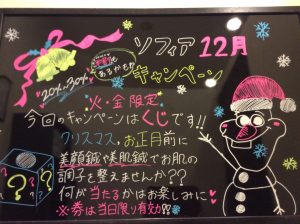 ソフィア 12月
キャンペーン
20%〜30%
半額も
あるかもね
火・金 限定
今回のキャンペーンはくじです!!
クリスマス、お正月前に
美顔鍼や美肌鍼でお肌の
調子を整えませんか??
何が当たるかはお楽しみに♡
※券は当日限り有効!!
? ? ? ?